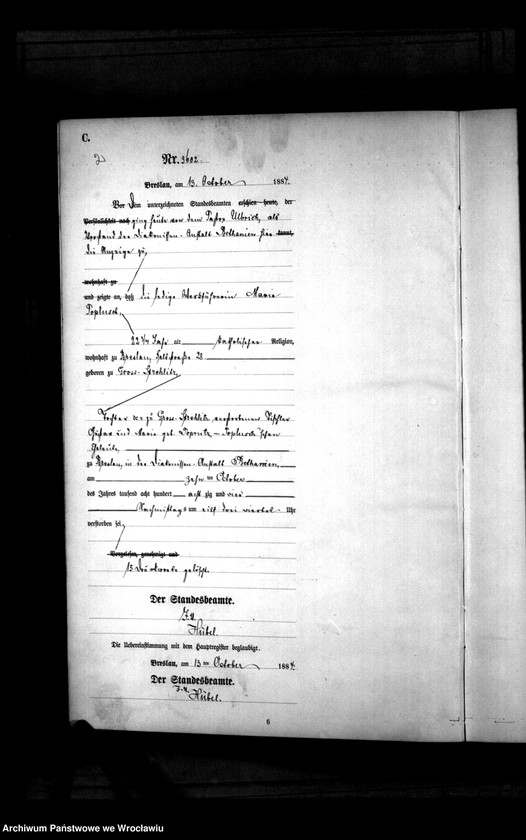 C.
Nr. 3602.
Breslau, am 13. October 1884.
Vor dem unterzeichneten Standesbeamten erschien heute, der
Persönlichkeit nach ging heute von dem Pastor Ulbrich, als
Vorstand der Diakonissen-Anstalt Bethanien hier kannt,
die Anzeige zu,
wohnhaft zu
und zeigte an, daß die ledige Marie
22 3/4 Jahr alt katholischer Religion,
wohnhaft zu Breslau, 28
geboren zu Gross-Strehlitz,
Tochter der zu Gross-Strehlitz verstorbenen Tischler
und Marie geb.
Eheleute,
zu Breslau, in der Diakonissen-Anstalt Bethanien,
am zehn ten October
des Jahres tausend acht hundert acht zig und vier
Nachmittags um elf drei viertel Uhr
verstorben sei,
Vorgelesen, genehmigt und
13 Druckworte gelöscht.
Der Standesbeamte.
J. V.
Hübel.
Die Uebereinstimmung mit dem Hauptregister beglaubigt.
Breslau, am 13 ten October 1884.
Der Standesbeamte.
J. V. Hübel.
6
Archiwum Państwowe we Wrocławiu